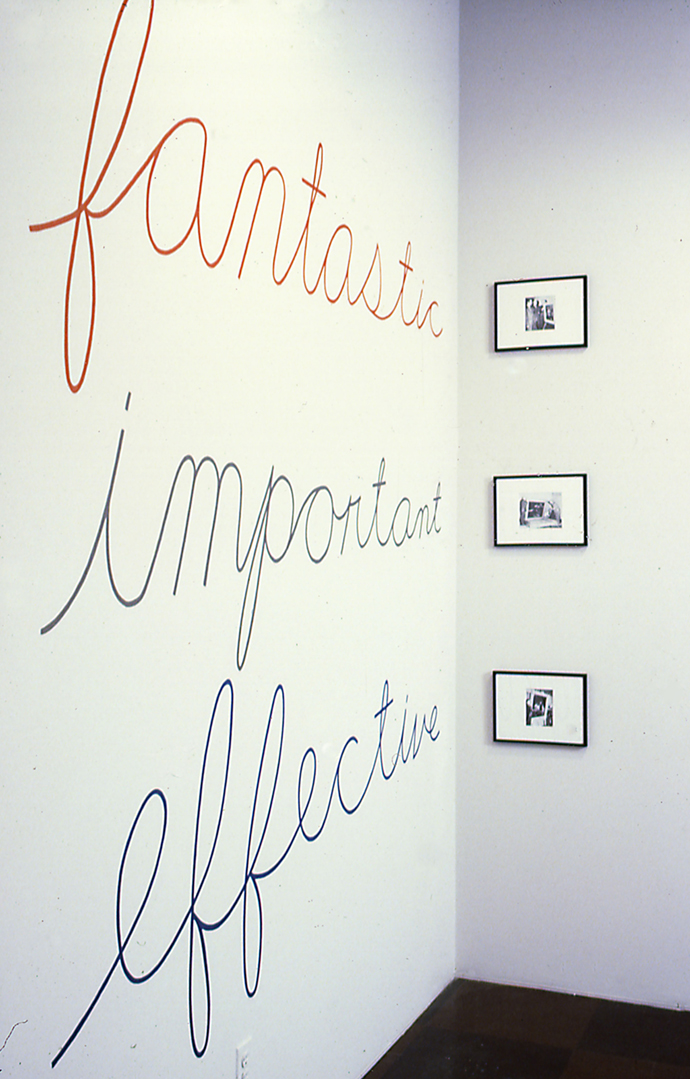 fantastic
important
effective